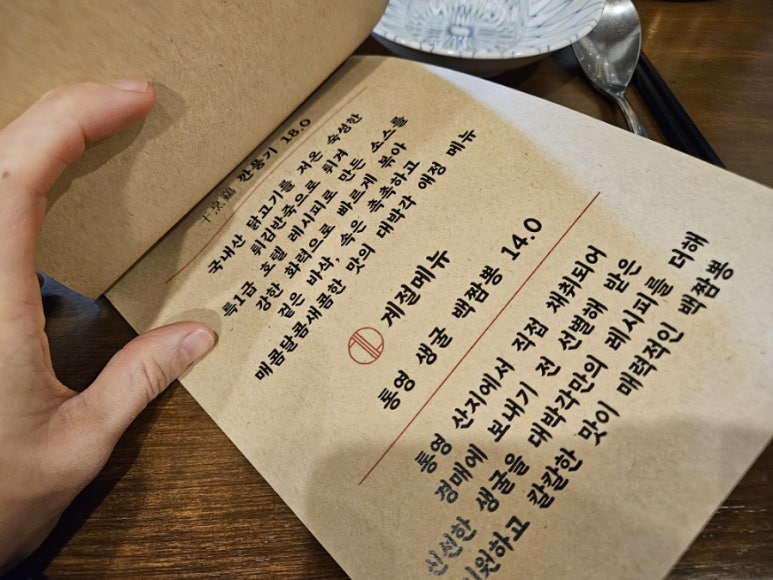 깐풍기 18.0
국내산 닭고기를 저온 숙성한
튀김반죽으로 튀겨
특1급 호텔 레시피로 만든 소스를
강한 화력으로 빠르게 볶아
겉은 바삭, 속은 촉촉하고
매콤달콤새콤한 맛의 대박각 애정 메뉴
계절메뉴
통영 생굴 백짬뽕 14.0
통영 산지에서 직접 채취되어
경매에 보내기 전 선별해 받은
신선한 생굴을 대박각만의 레시피를 더해
시원하고 칼칼한 맛이 매력적인 백짬뽕